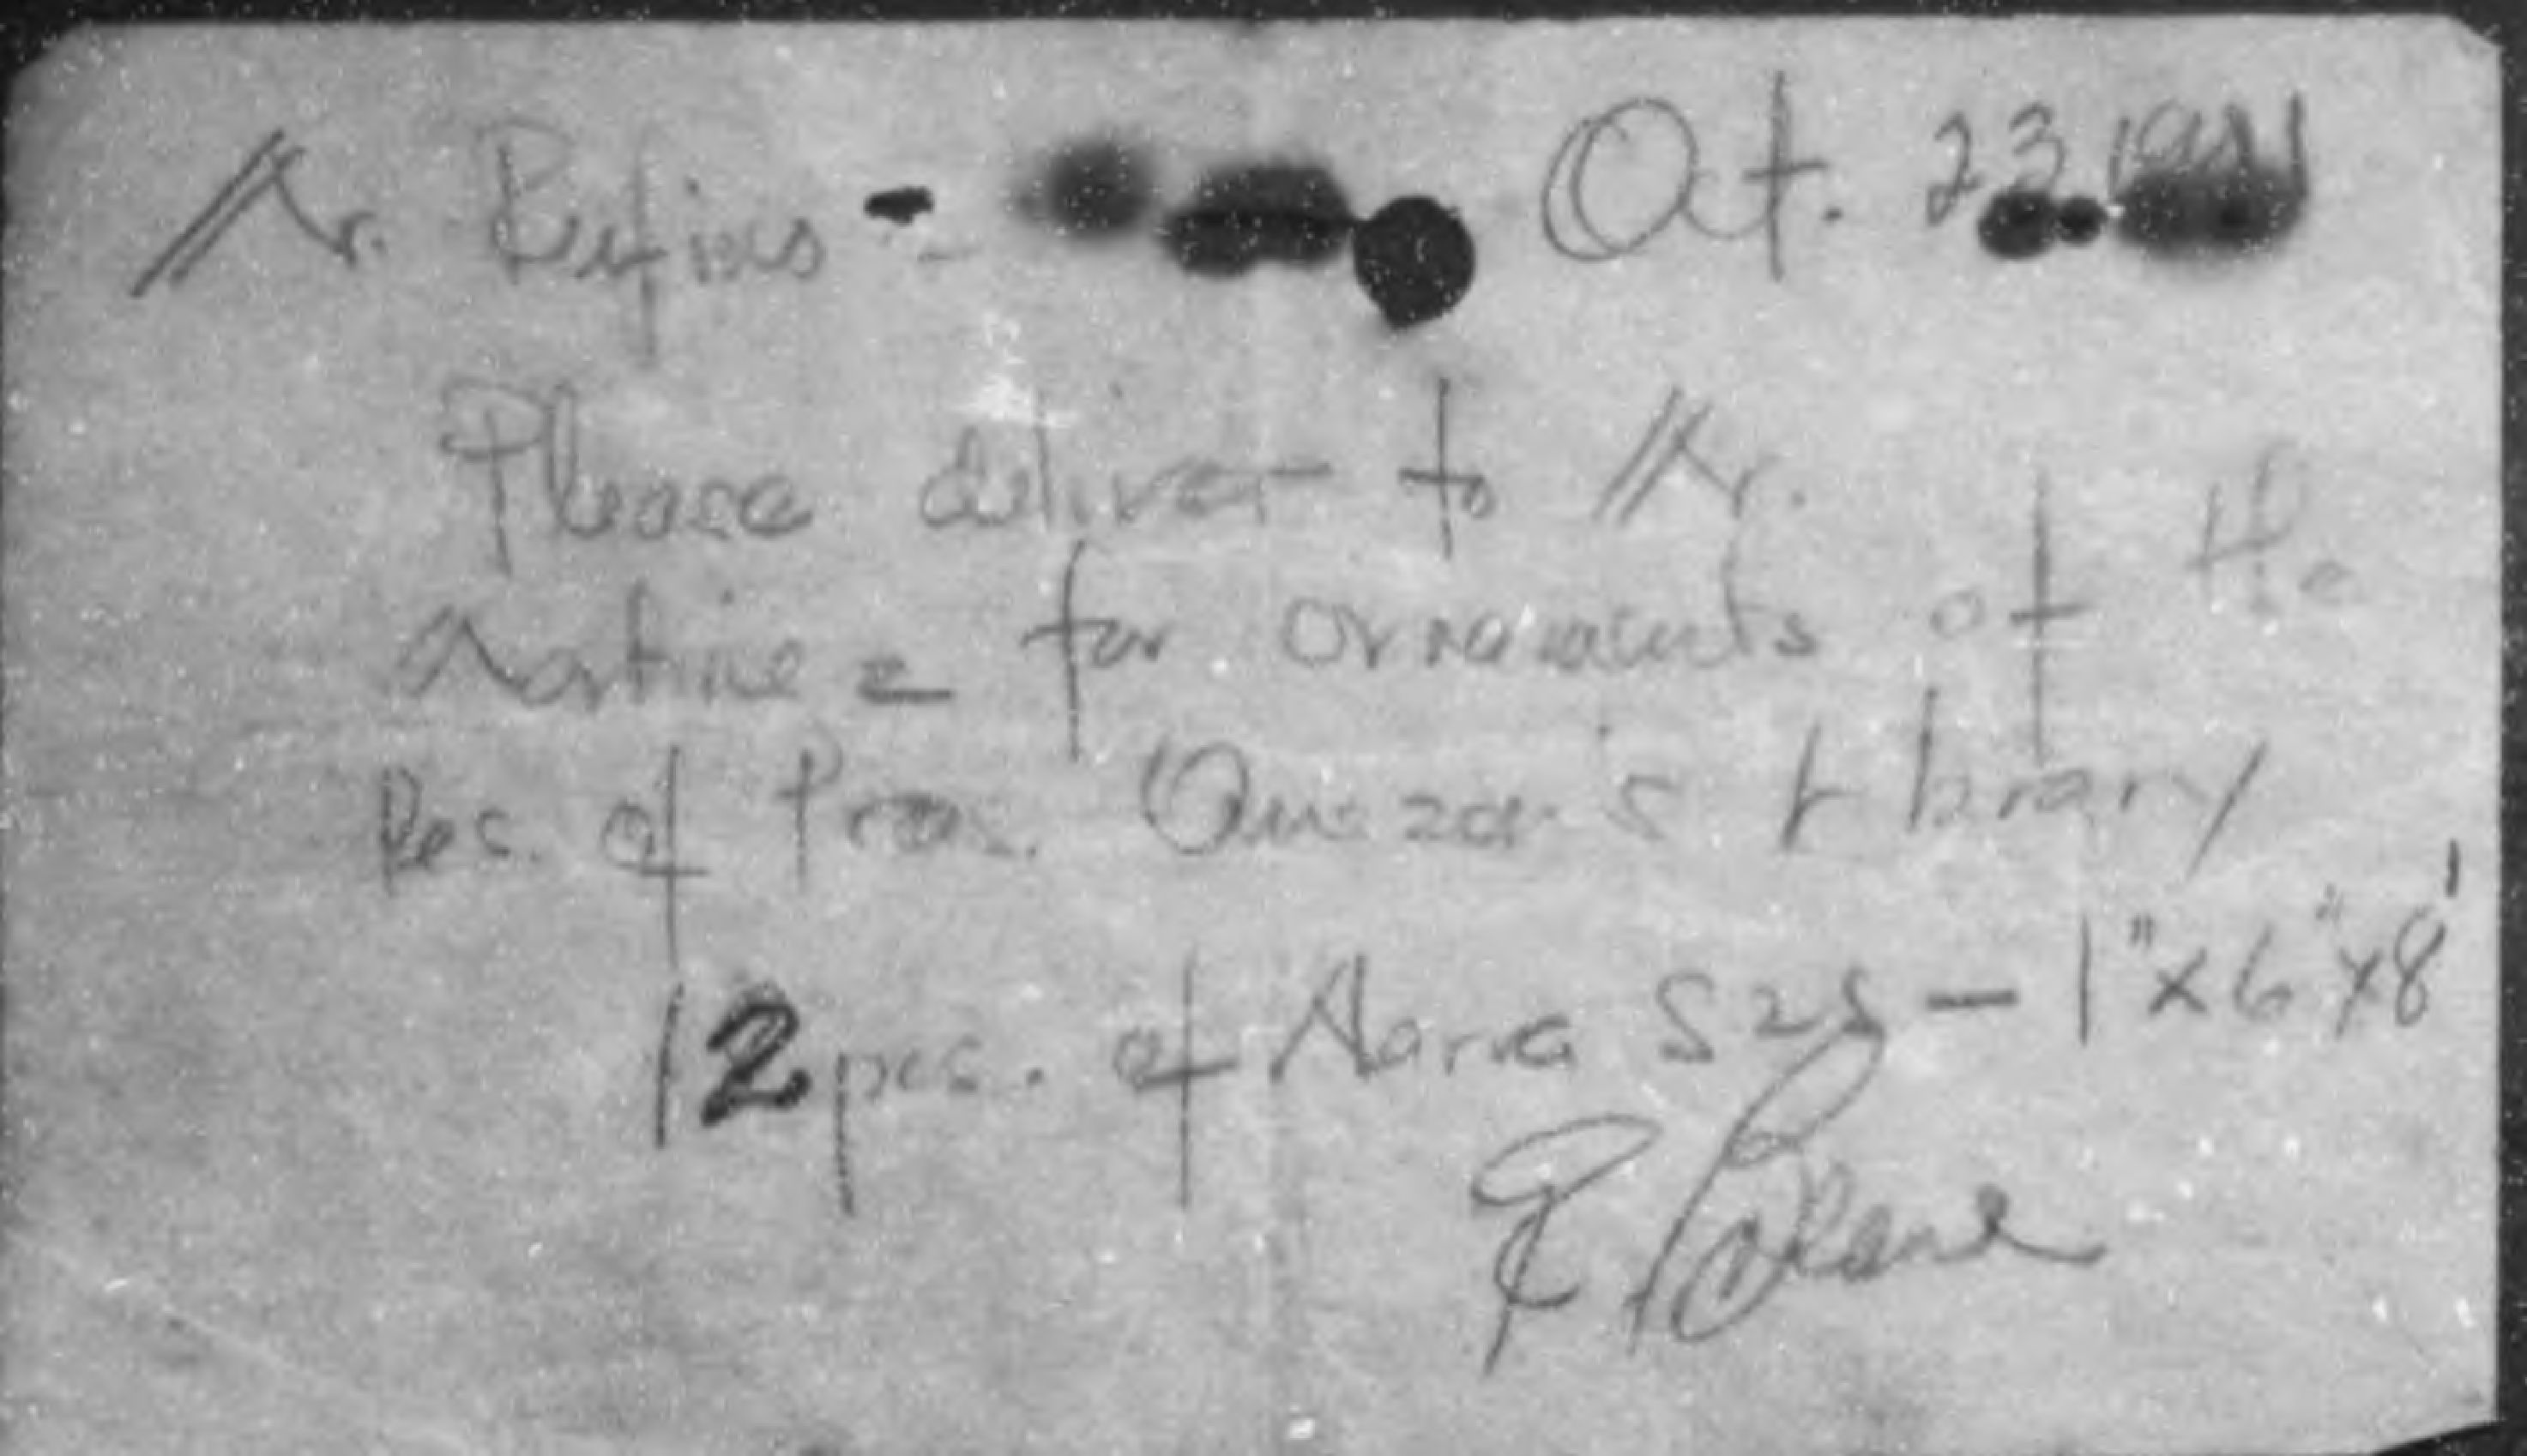 Mr. Rufino - Oct. 23, 1941
Please deliver to Mr.
Martinez for ornaments of the
Res. of Pres. Quezon's Library
12 pcs. of Narra S2S - 1" x 6" x 8'